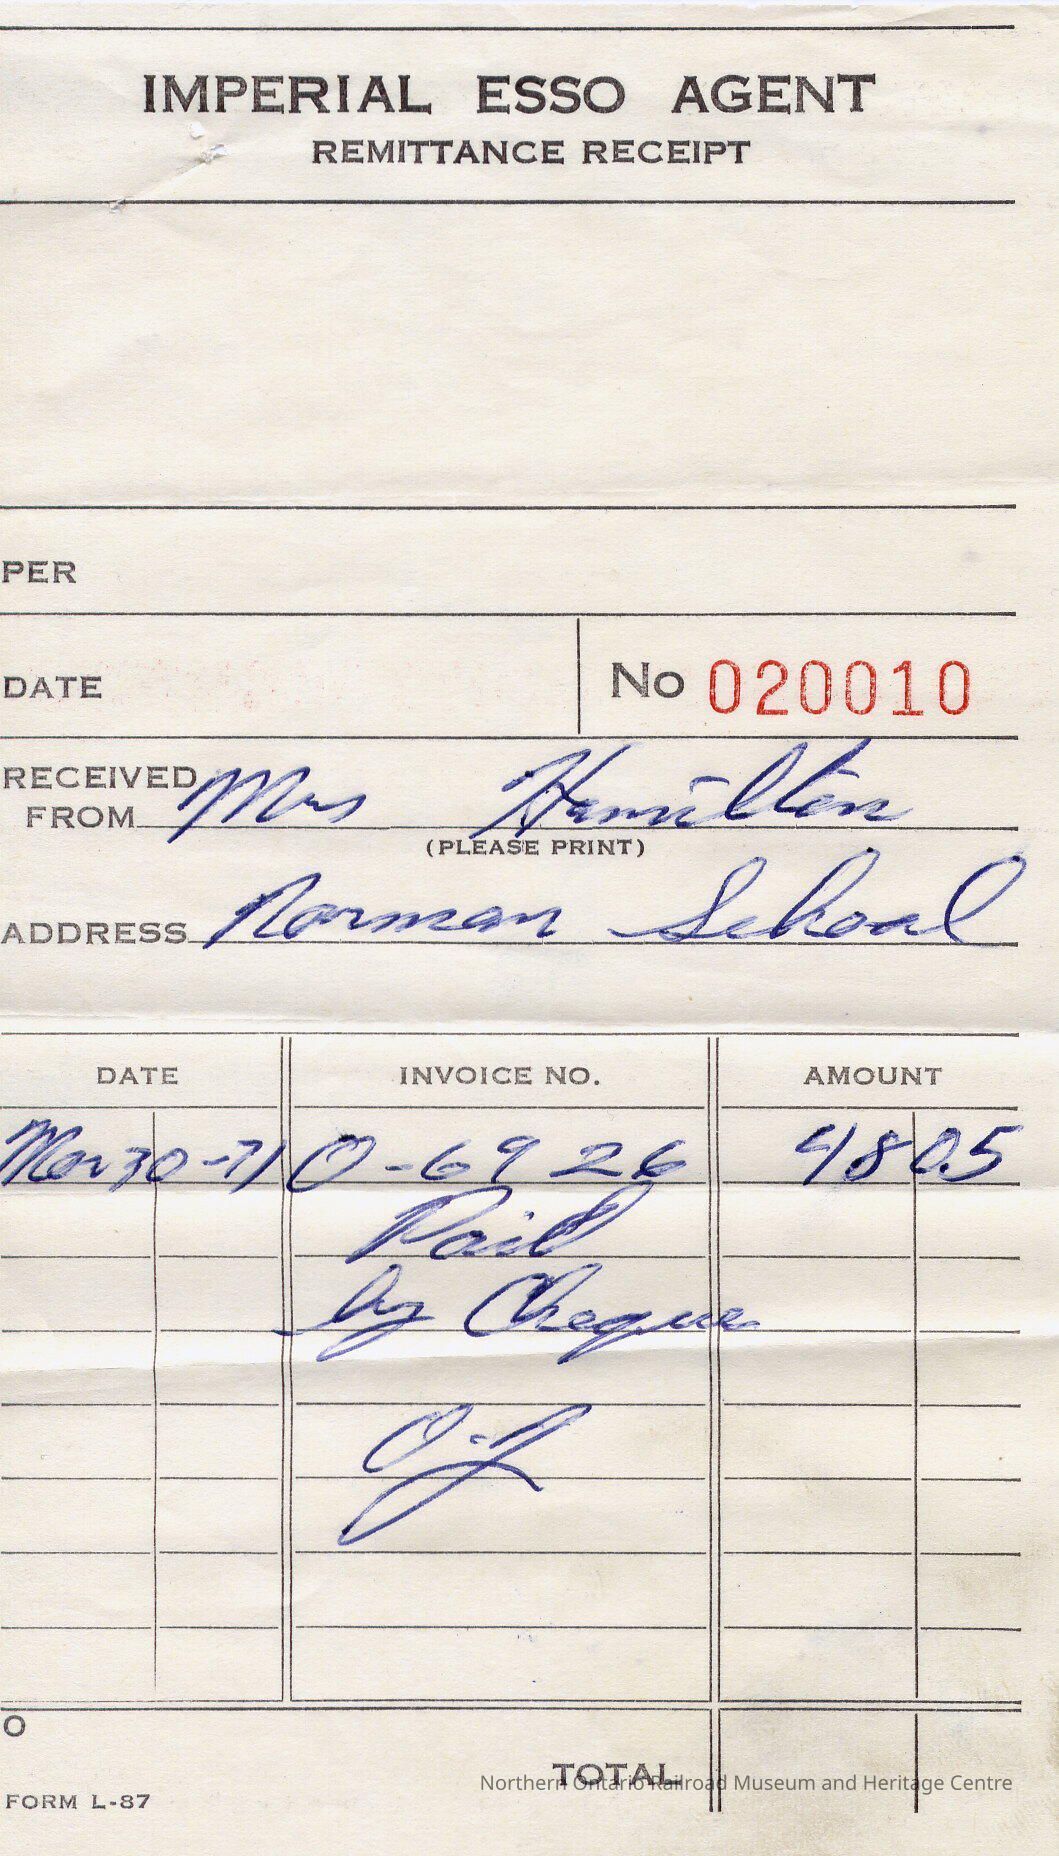 IMPERIAL ESSO AGENT
REMITTANCE RECEIPT
PER
DATE
No 020010
RECEIVED
FROM Mrs Hamilton
(PLEASE PRINT)
ADDRESS Norman School
DATE INVOICE NO. AMOUNT
Mar 30-71 0-6926 48 05
Paid
by Cheque
O
TOTAL
Northern Ontario Railroad Museum and Heritage Centre
FORM L-87